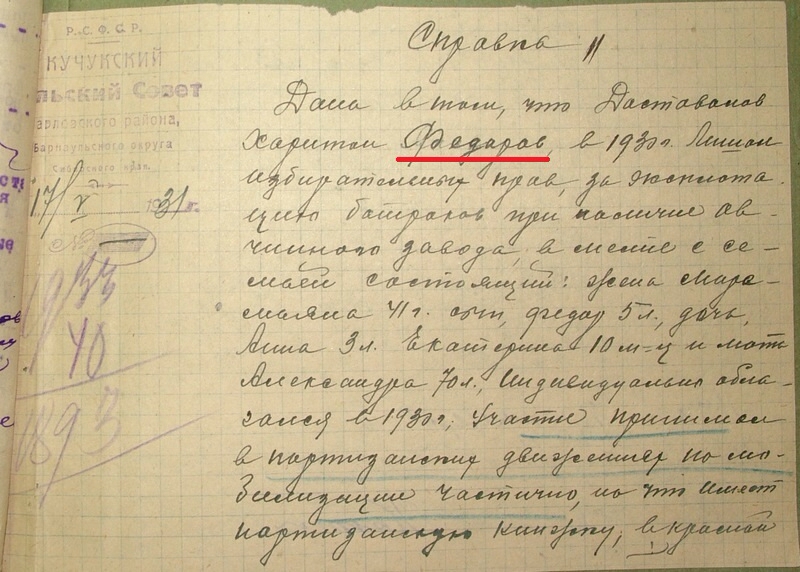 Р.-С. Ф. С. Р.
КУЧУКСКИЙ
льский Совет
авловского района,
Барнаульского округа
Сибирского края.
17/V 1931 г.
№
1933
40
1893
Справка
Дана в том, что Доставалов
Харитон Федоров, в 1930 г. Лишон
избирательных прав, за эксплота
цию батраков при наличие ов-
чинного завода, в месте с се-
мьей состоящий: жена Маре-
мьяна 41 г. сын, федор 5 л., дочь,
Анна 3 л. Екатерина 10 м-ц и мать
Александра 70 л., Индивидуально обла-
гался в 1930 г., Участие принимал
в партизанских движениях по мо-
билизации частично, но что имеет
партизанскую книжку, в красной